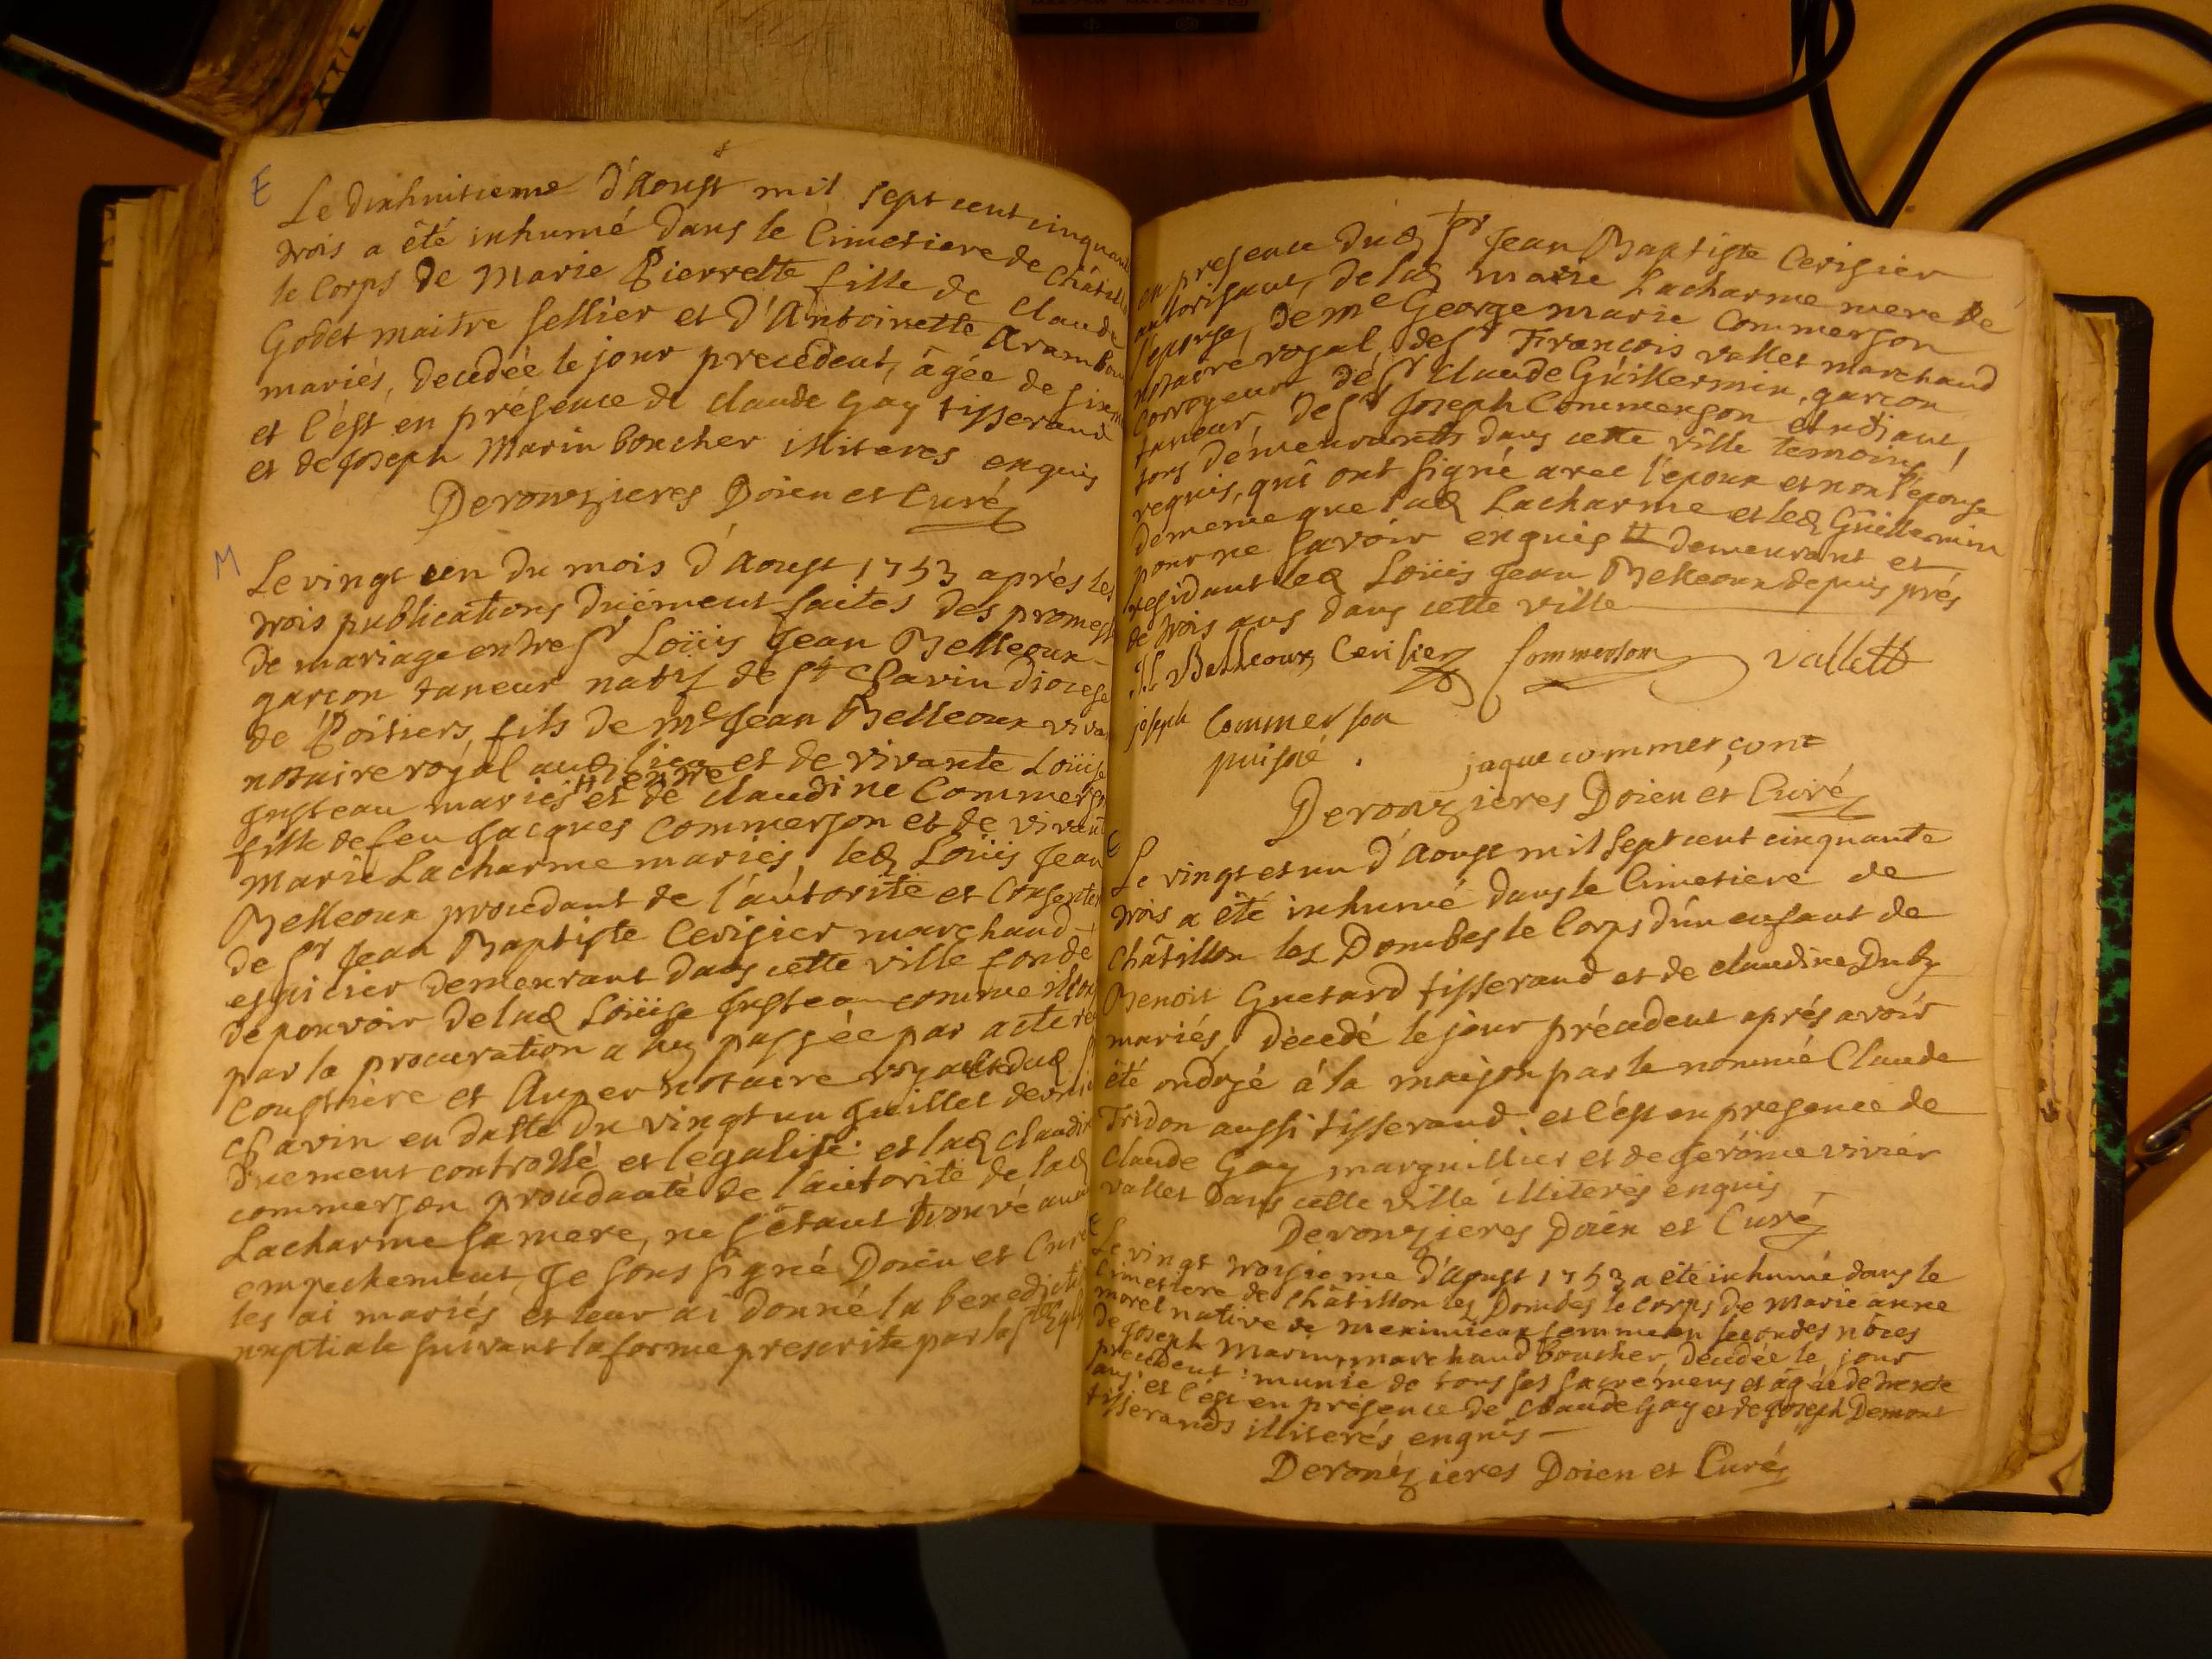 E
Le dixhuitieme d'Aoust mil sept cent cinquante
trois a êté inhumé dans le Cimetiere de Châtillon
le Corps de Marie Pierrette fille de Claude
Godet maitre sellier et d'Antoinette
mariés, decedée le jour precedent, âgée de
et c'est en présence de claude Gay tisserand
et de Joseph Marin boucher illiteres enquis
Derouzieres Doien et Curé
M
Le vingt un du mois d'Aoust 1753 aprés les
trois publications duëment faites des promesses
de mariage entre sr Loüis Jean Belleoux
garçon taneur natif de st Savin diocese
de Poitiers, fils de me Jean Belleoux vivant
notaire royal aud lieu et de vivante Loüise
Justeau mariés entre et de claudine Commerson
fille de feu Jacques Commerson et de vivante
Marie Lacharme mariés, led Loüis Jean
Belleoux procedant de l'autorité et Consentement
de sr Jean Baptiste Cerisier marchand
espicier demeurant dans cette ville fondé
de pouvoir de lad Loüise Justeau comme
par la procuration a luy passée par acte
et Auger notaire royal dud
Savin en datte du vingt un Juillet dernier
duement controllé et legalisé: et lad claudine
commerson procedante de l'autorité de lad
Lacharme sa mere, ne s'étant trouvé aucun
empechement, Je sous signé Doien et Curé
les ai mariés et leur ai donné la benediction
nuptiale suivant la forme prescrite par la ste Eglise
en presence dud sr Jean Baptiste Cerisier
autorisant, de lad marie Lacharme mere de
l'epouse, de me George marie Commerson
notaire royal, de sr François vallet marchand
Corroyeur de sr Claude Guillermin, garçon
taneur, de sr Joseph Commerson etudiant,
tous demeurants dans cette ville temoins
requis, qui ont signé avec l'epoux et non l'épouse
de meme que lad Lacharme et led Guillermin
pour ne savoir enquis # demeurant et
residant led Loüis Jean Belleoux depuis prés
de trois ans dans cette ville
Belleoux Cerisier Commerson vallett
joseph Commerson
puisné . jaque commerçont
Derouzieres Doien et Curé
E
Le vingt et un d'Aoust mil sept cent cinquante
trois a êté inhumé dans le Cimetiere de
Châtillon les Dombes le Corps d'un enfant de
Benoit Guetard tisserand et de claudine Duby
mariés, decedé le jour précedent aprés avoir
êté ondoyé à la maison par le nommé Claude
Tridon aussi tisserand. et c'est en presence de
Claude Gay marguillier et de Jerôme vivier
vallet dans cette ville illiterés enquis
Derouzieres Doien et Curé
E
Le vingt troisieme d'Aoust 1753 a êté inhumé dans le
Cimetiere de Châtillon les Dombes le Corps de Marie anne
morel native de meximieux femme en secondes nôces
de Joseph Marin, marchand boucher, decedée le jour
precedent: munie de tous ses sacremens et agée de trente
ans: et c'est en présence de Claude Gay et de Joseph Demont
tisserands illiterés enquis
Derouzieres Doien et Curé